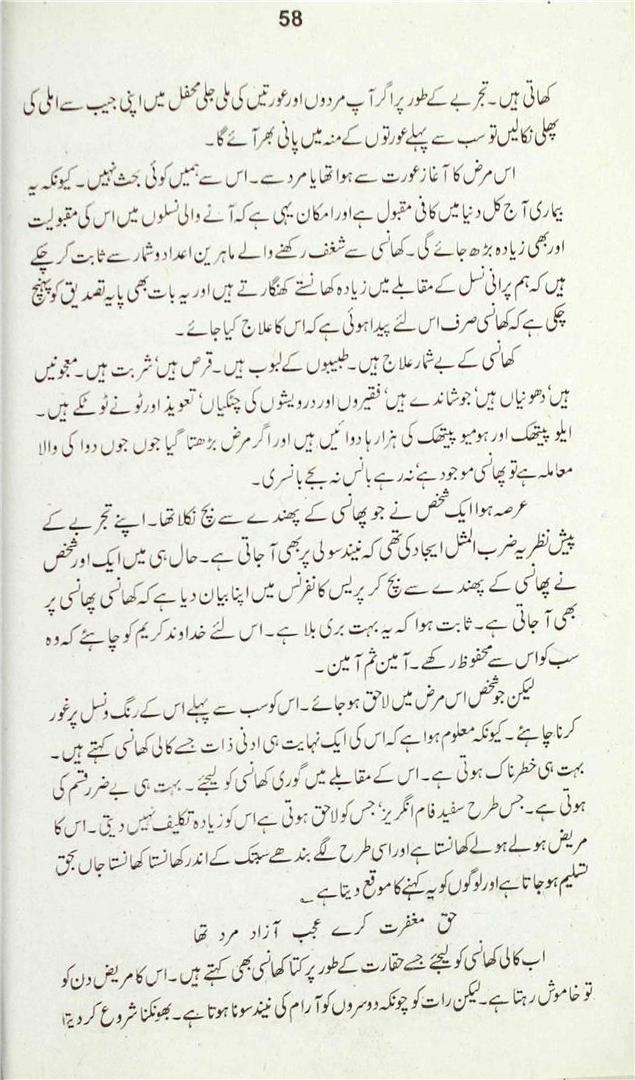 58
کھاتی ہیں۔ تجربے کے طور پر اگر آپ مردوں اور عورتیں کی ملی جلی محفل میں اپنی جیب سے املی کی
پھلی نکالیں تو سب سے پہلے عورتوں کے منہ میں پانی بھر آئے گا۔
اس مرض کا آغاز عورت سے ہوا تھا یا مرد سے۔ اس سے ہمیں کوئی بحث نہیں۔ کیونکہ یہ
بیماری آج کل دنیا میں کافی مقبول ہے اور امکان یہی ہے کہ آنے والی نسلوں میں اس کی مقبولیت
اور بھی زیادہ بڑھ جائے گی۔ کھانسی سے شغف رکھنے والے ماہرین اعداد و شمار سے ثابت کر چکے
ہیں کہ ہم پرانی نسل کے مقابلے میں زیادہ کھانستے کھنگارتے ہیں اور یہ بات بھی پایہ تصدیق کو پہنچ
چکی ہے کہ کھانسی صرف اس لئے پیدا ہوئی ہے کہ اس کا علاج کیا جائے۔
کھانسی کے بے شمار علاج ہیں۔ طبیبوں کے لبوب ہیں۔ قرص ہیں‘ شربت ہیں۔ معجونیں
ہیں‘ دھونیاں ہیں‘ جوشاندے ہیں‘ فقیروں اور درویشوں کی چٹکیاں‘ تعویذ اور ٹونے ٹوٹکے ہیں۔
ایلو پیتھک اور ہومیو پیتھک کی ہزار ہا دوائیں ہیں اور اگر مرض بڑھتا گیا جوں جوں دوا کی والا
معاملہ ہے تو پھانسی موجود ہے‘ نہ رہے بانس نہ بجے بانسری۔
عرصہ ہوا ایک شخص نے جو پھانسی کے پھندے سے بچ نکلا تھا۔ اپنے تجربے کے
پیش نظر یہ ضرب المثل ایجاد کی تھی کہ نیند سولی پر بھی آ جاتی ہے۔ حال ہی میں ایک اور شخص
نے پھانسی کے پھندے سے بچ کر پریس کانفرنس میں اپنا بیان دیا ہے کہ کھانسی پھانسی پر
بھی آ جاتی ہے۔ ثابت ہوا کہ یہ بہت بری بلا ہے۔ اس لئے خداوند کریم کو چاہئے کہ وہ
سب کو اس سے محفوظ رکھے۔ آمین ثم آمین۔
لیکن جو شخص اس مرض میں لاحق ہو جائے۔ اس کو سب سے پہلے اس کے رنگ و نسل پر غور
کرنا چاہئے۔ کیونکہ معلوم ہوا ہے کہ اس کی ایک نہایت ہی ادنی ذات جسے کالی کھانسی کہتے ہیں۔
بہت ہی خطرناک ہوتی ہے۔ اس کے مقابلے میں گوری کھانسی کو لیجئے۔ بہت ہی بے ضرر قسم کی
ہوتی ہے۔ جس طرح سفید فام انگریز‘ جس کو لاحق ہوتی ہے اس کو زیادہ تکلیف نہیں دیتی۔ اس کا
مریض ہولے ہولے کھانستا ہے اور اسی طرح لگے بندھے سبتک کے اندر کھانستا کھانستا جاں بحق
تسلیم ہو جاتا ہے اور لوگوں کو یہ کہنے کا موقع دیتا ہے ؎
حق مغفرت کرے عجب آزاد مرد تھا
اب کالی کھانسی کو لیجئے جسے حقارت کے طور پر کتا کھانسی بھی کہتے ہیں۔ اس کا مریض دن کو
تو خاموش رہتا ہے۔ لیکن رات کو چونکہ دوسروں کو آرام کی نیند سونا ہوتا ہے۔ بھونکنا شروع کر دیتا